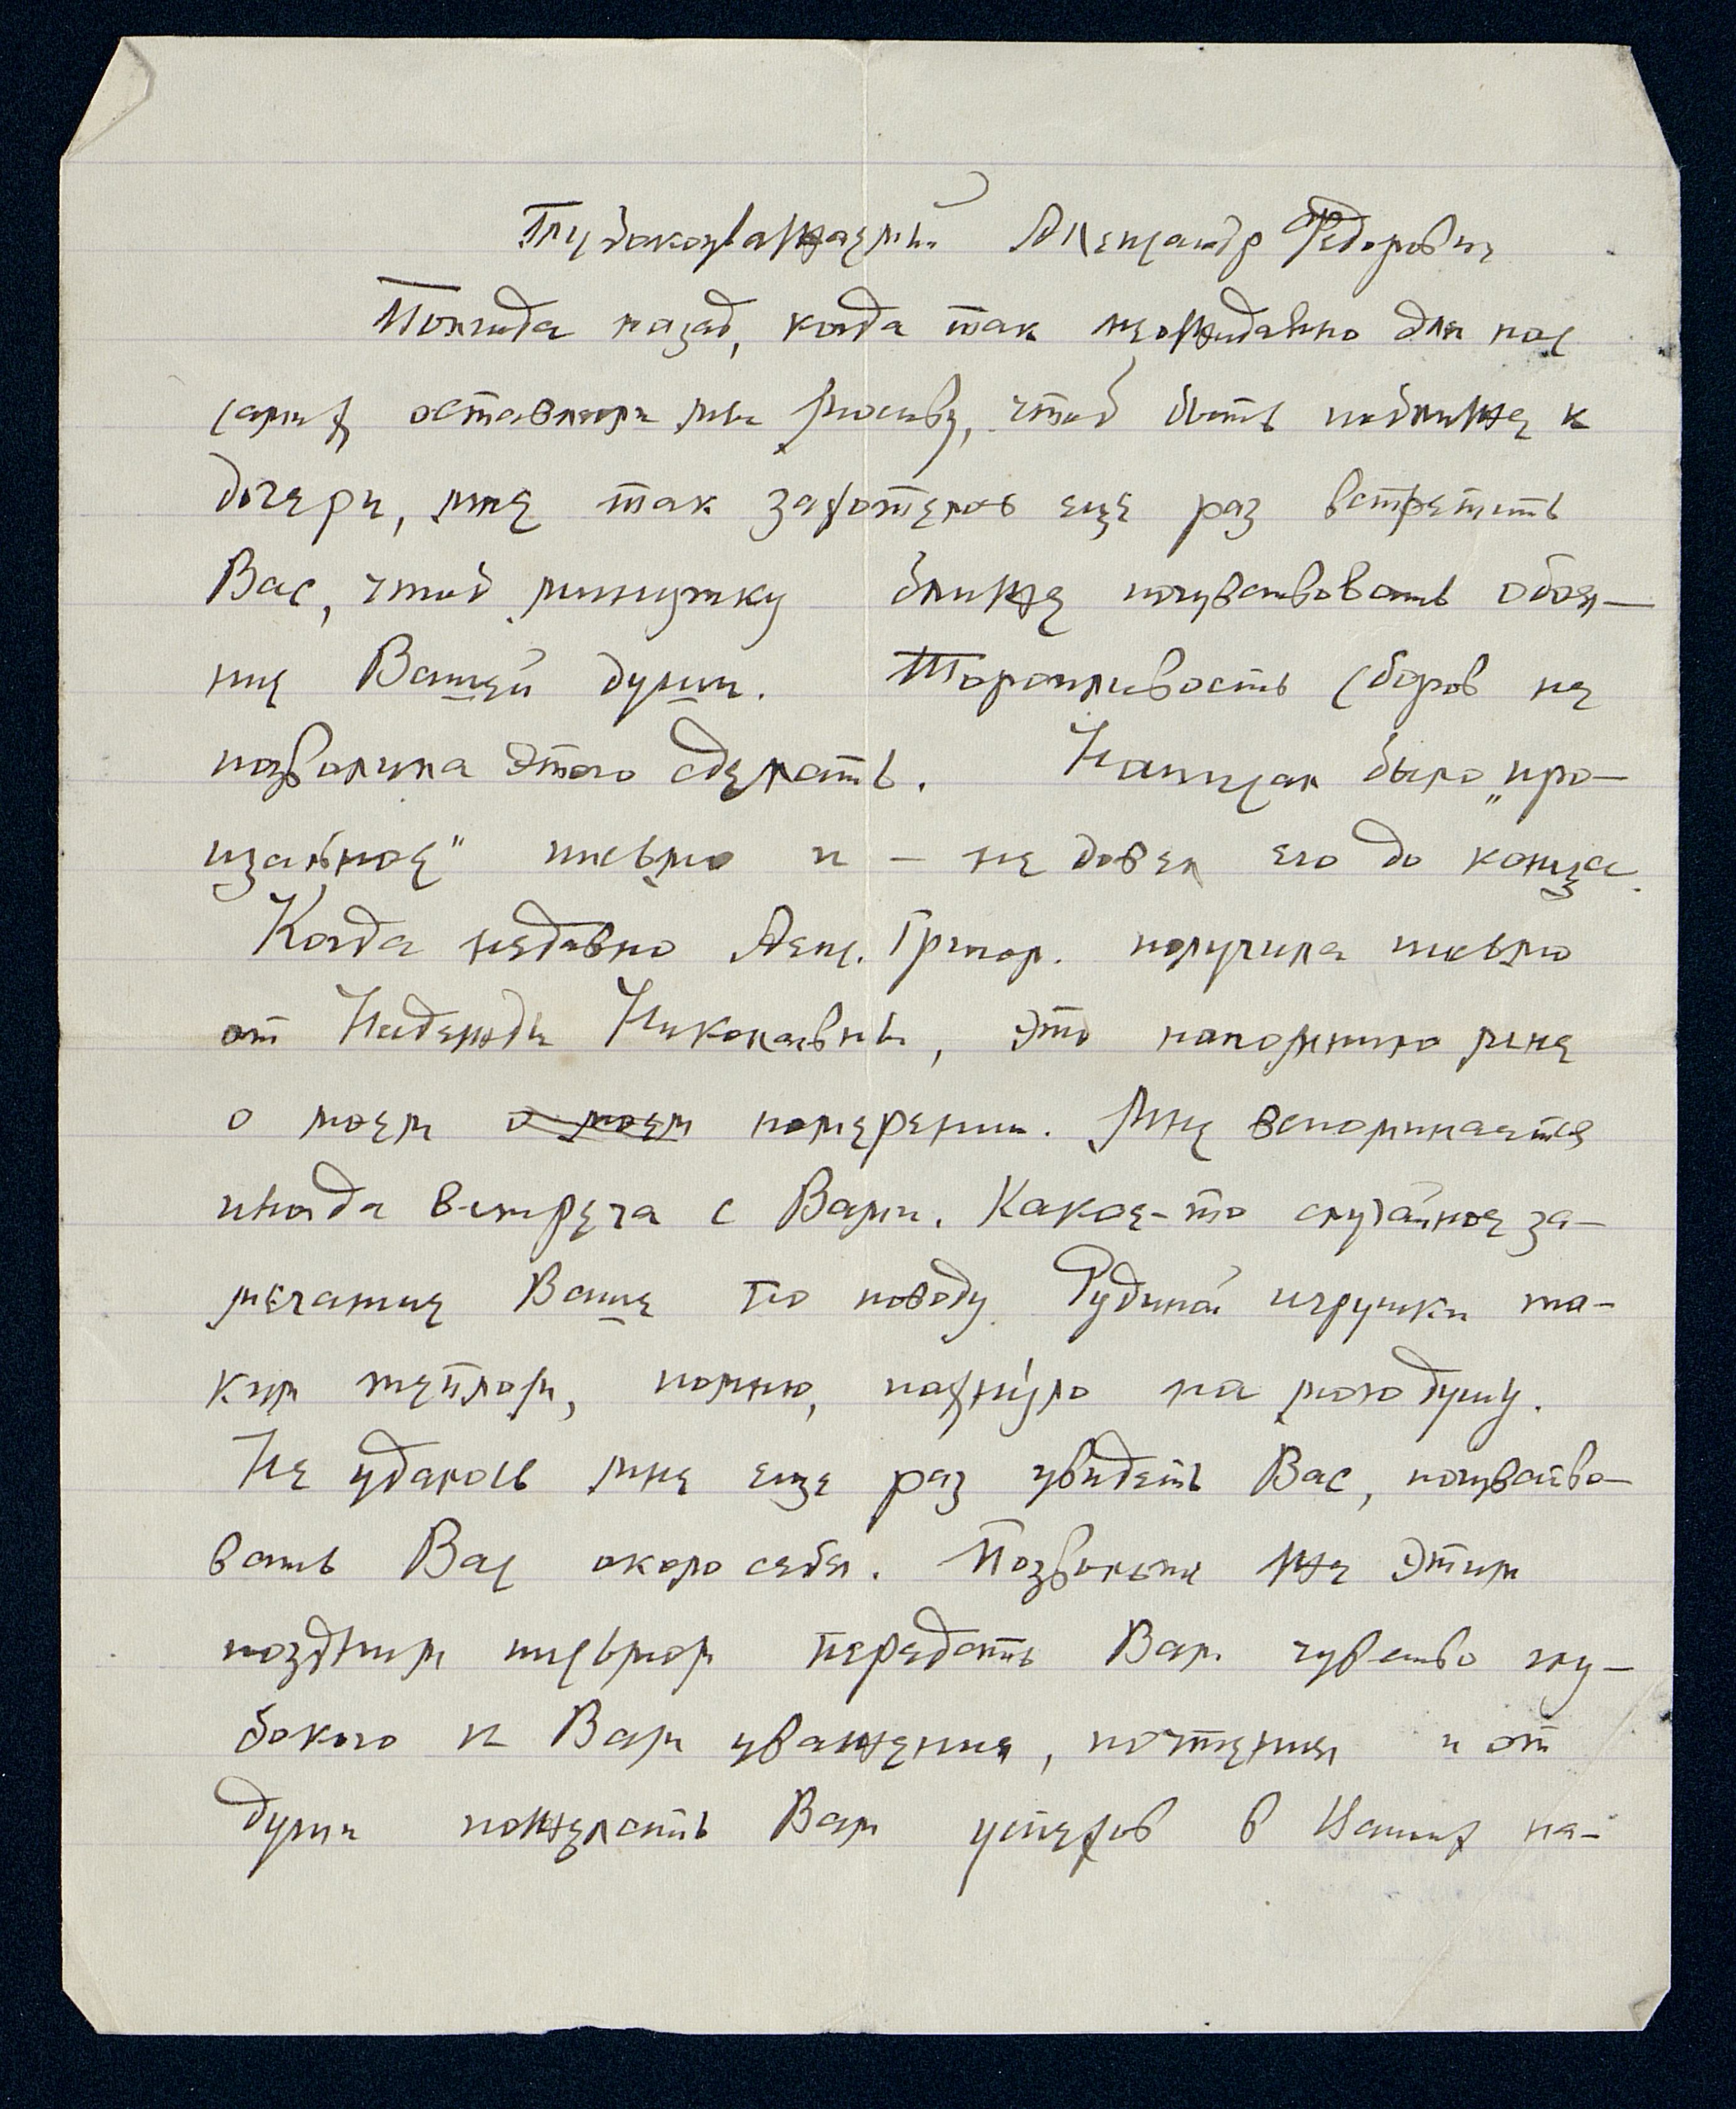 Глубокоуважаемый Александр Федорович
Полгода назад, когда так неожиданно для нас
самих оставляли мы Москву, чтоб быть поближе к
дочери, мне так захотелось еще раз встретить
Вас, чтоб минутку ближе почувствовать обая–
ние Вашей души. Торопливость сборов не
позволила этого сделать. Написал было „про–
щальное" письмо и – не довел его до конца.
Когда недавно Алек. Григор. получила письмо
от Надежды Николаевны, это напомнило мне
о моем о моем намерении. Мне вспоминается
иногда встреча с Вами. Какое-то случайное за–
мечание Ваше по поводу Рудиной игрушки та–
ким теплом, помню, пахнуло на мою душу.
Не удалось мне еще раз увидеть Вас, почувство–
вать Вас около себя. Позвольте же этим
поздним письмом передать Вам чувство глу–
бокого к Вам уважения, почтения и от
души пожелать Вам успехов в Ваших на–